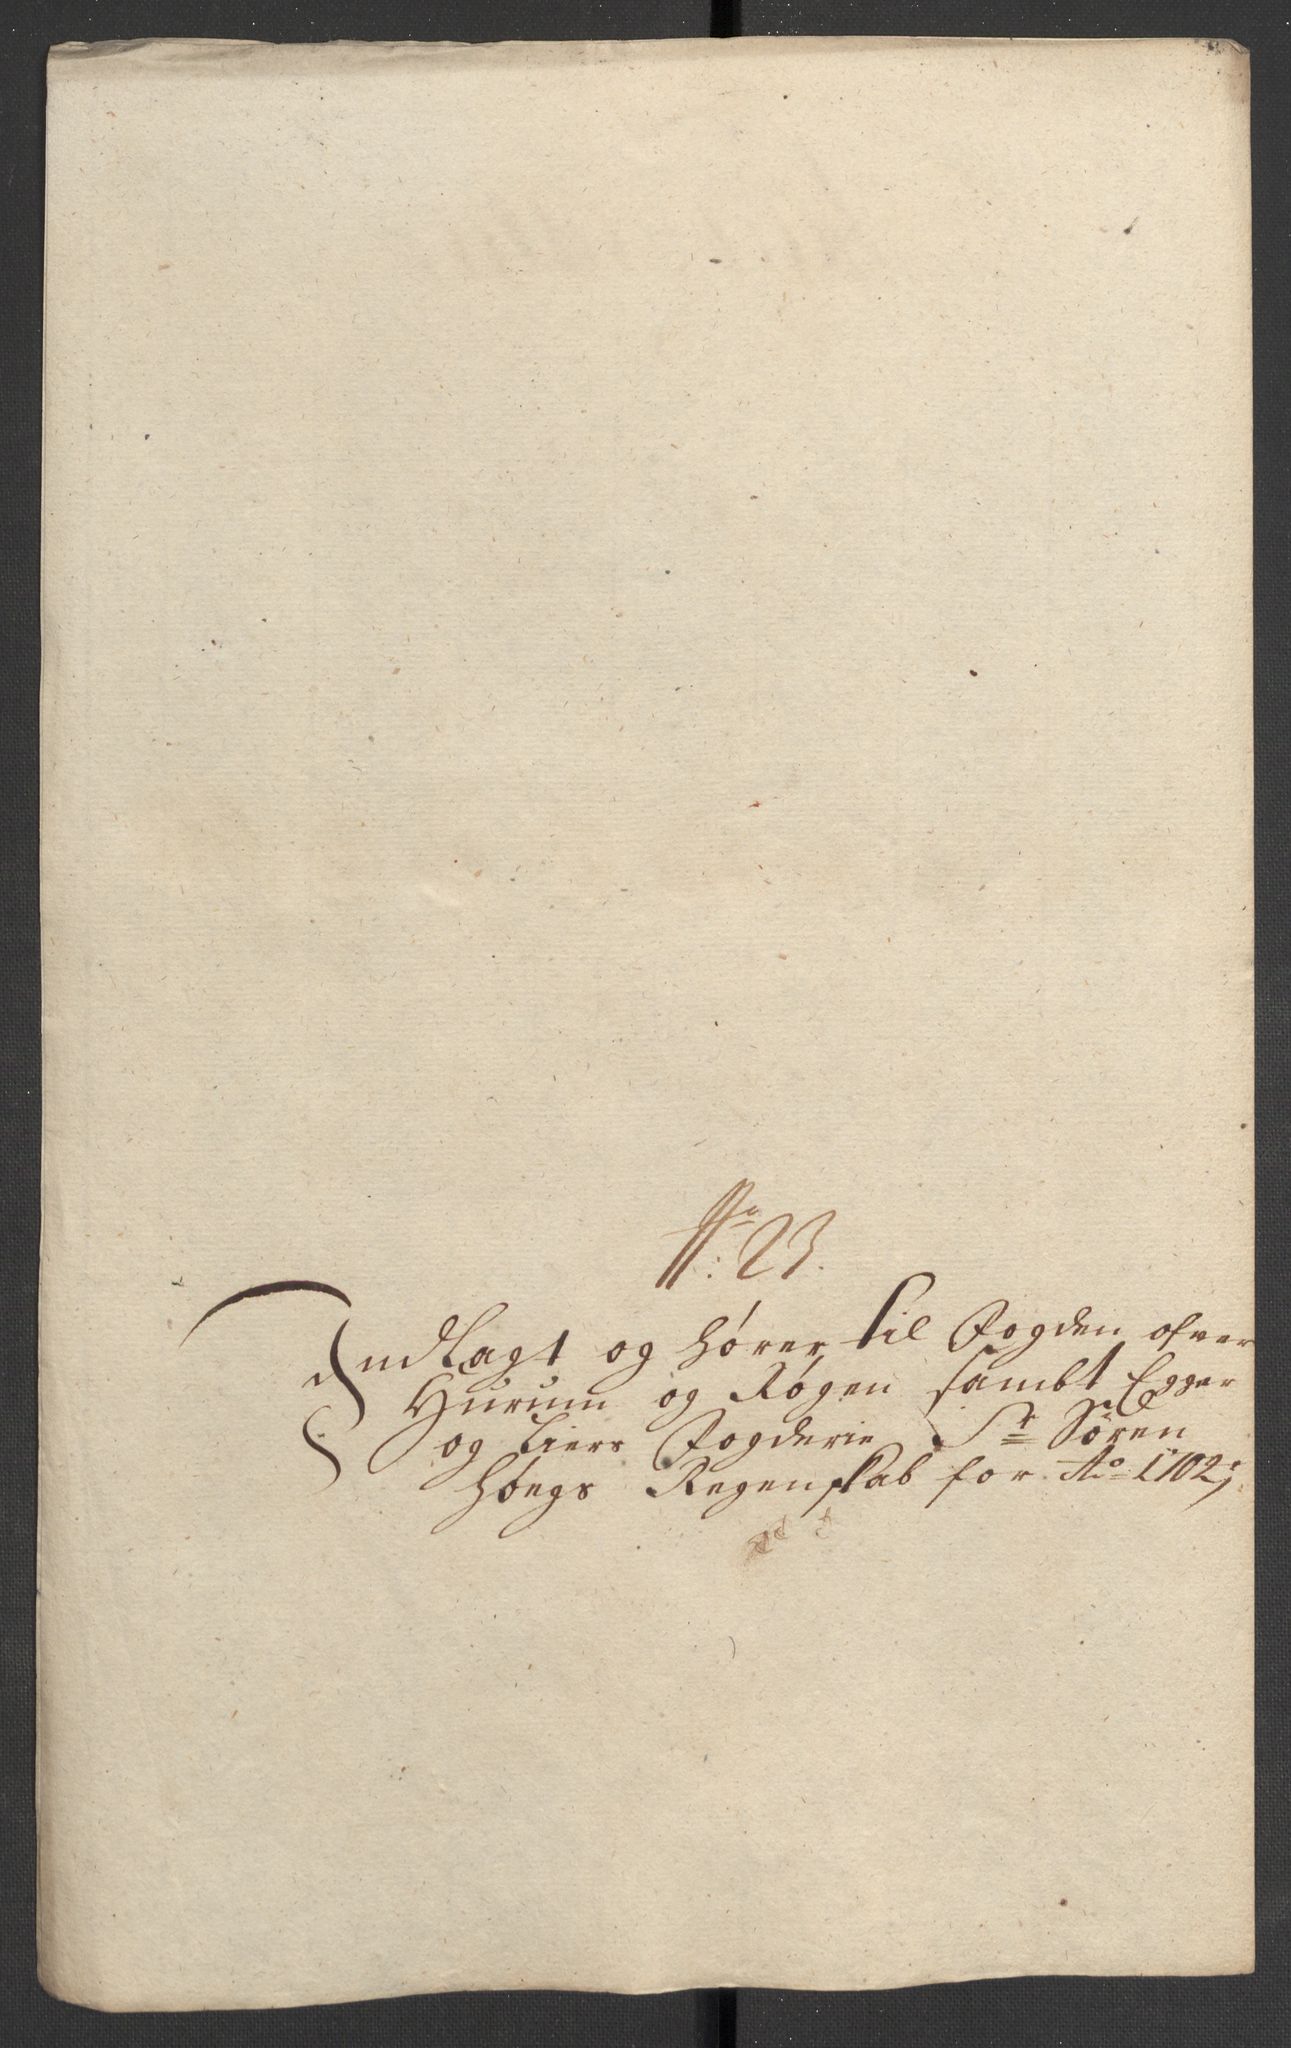 No: 23.
Indlagt og hører til Fogden ofver
Hurum og Røgen sambt Egger
og Liers Fogderie Sr Søren
Høegs Regenskab for Ao 1702;